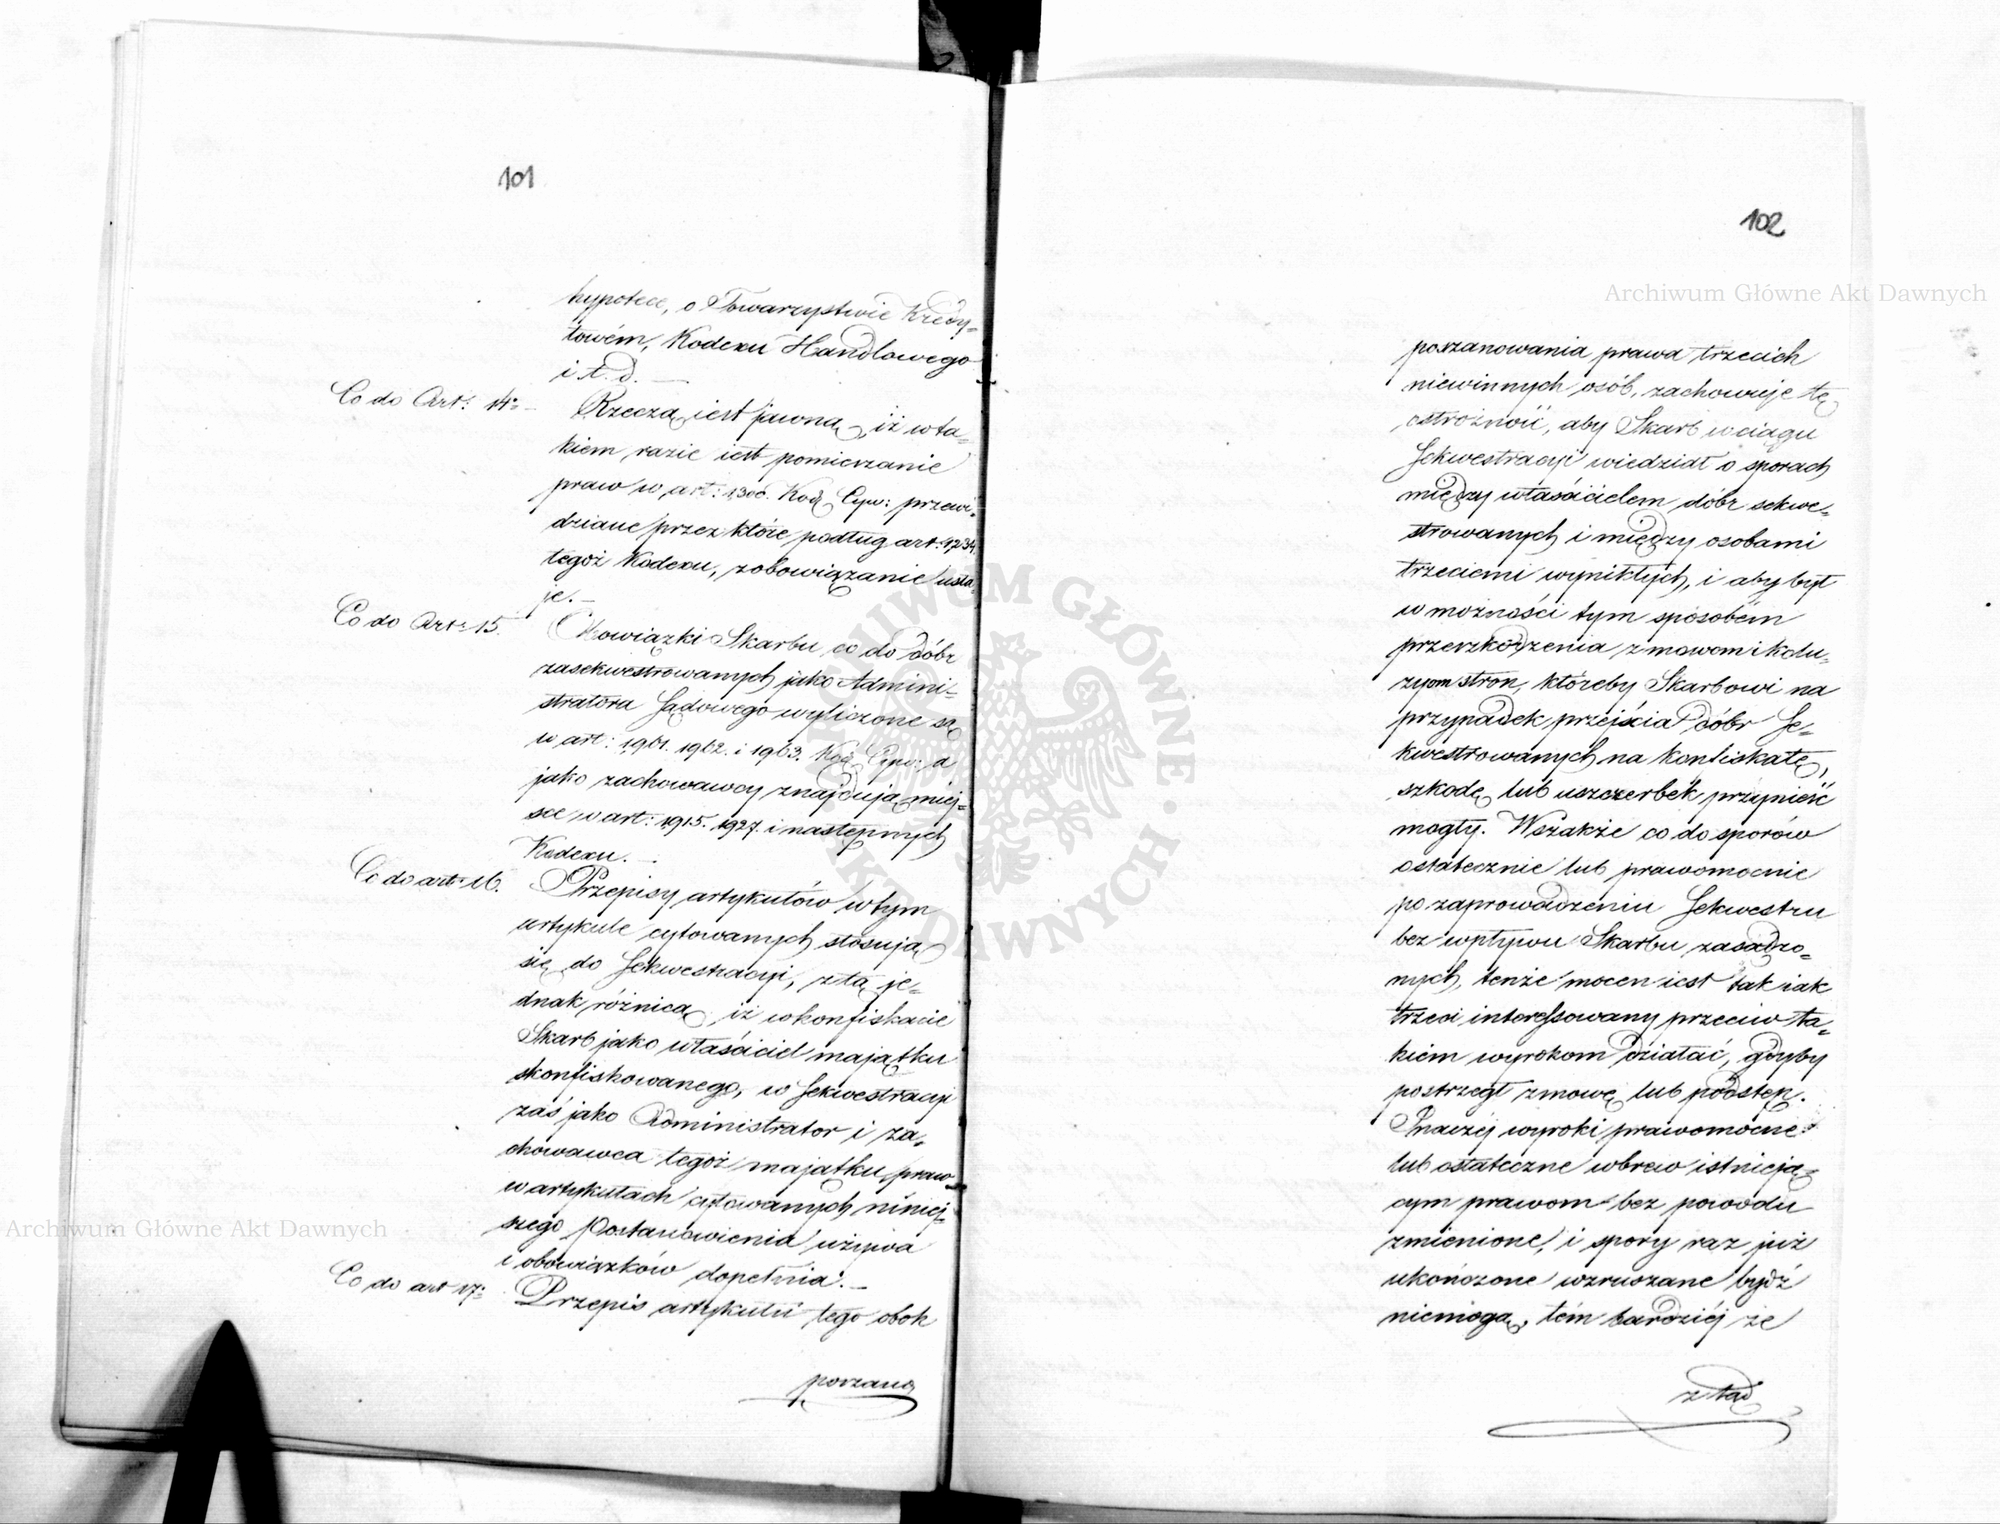 101
hypotece, o Towarzystwie Kredy=
towém, Kodexu Handlowego
i t. d. —
Co do Art: 14: —
Rzeczą iest jawną, iż w ta=
kiem razie iest pomieszanie
praw w art: 1300. Kod. Cyw: przewi=
dziane przez które podług art: 1234
tegoż Kodexu, zobowiązanie usta=
je. —
Co do Art: 15.
Obowiązki Skarbu co do dóbr
zasekwestrowanych jako Admini=
stratora Sądowego wyliczone są
w art: 1961. 1962. i 1963. Kod. Cyw: a
jako zachowawcy znajdują miej=
sce w art: 1915. 1927. i następnych
Kodexu. —
Co do art: 16.
Przepisy artykułów w tym
artykule cytowanych stosują
się do Sekwestracyi, z tą je=
dnak różnicą, iż w konfiskacie
Skarb jako właściciel majątku
skonfiskowanego, w Sekwestracyi
zaś jako Administrator i za=
chowawca tegoż majątku, praw
w artykułach cytowanych niniej=
szego Postanowienia używa
i obowiązków dopełnia. —
Co do art 17:
Przepis artykułu tego obok
poszano
102
poszanowania prawa trzecich
niewinnych osób, zachowuje tę
ostrożność, aby Skarb w ciągu
Sekwestracyi wiedział o sporach
między właścicielem dóbr sekwe=
strowanych i między osobami
trzeciemi wynikłych, i aby był
w możności tym sposobem
przeszkodzenia zmowom i kolu=
zyom stron, któreby Skarbowi na
przypadek przejścia dóbr Se=
kwestrowanych na konfiskatę,
szkodę lub uszczerbek przynieść
mogły. Wszakże co do sporów
ostatecznie lub prawomocnie
po zaprowadzeniu Sekwestru
bez wpływu Skarbu zasądzo=
nych, tenże mocen iest tak iak
trzeci interessowany przeciw ta=
kiem wyrokom działać, gdyby
postrzegł zmowę lub podstęp.
Inaczéj wyroki prawomocne
lub ostateczne wbrew istnieją=
cym prawom bez powodu
zmienione, i spory raz już
ukończone wzruszane bydź
niemogą, tém bardziéj że
z tąd
Archiwum Główne Akt Dawnych
Archiwum Główne Akt Dawnych
ARCHIWUM GŁÓWNE · AKT DAWNYCH ·